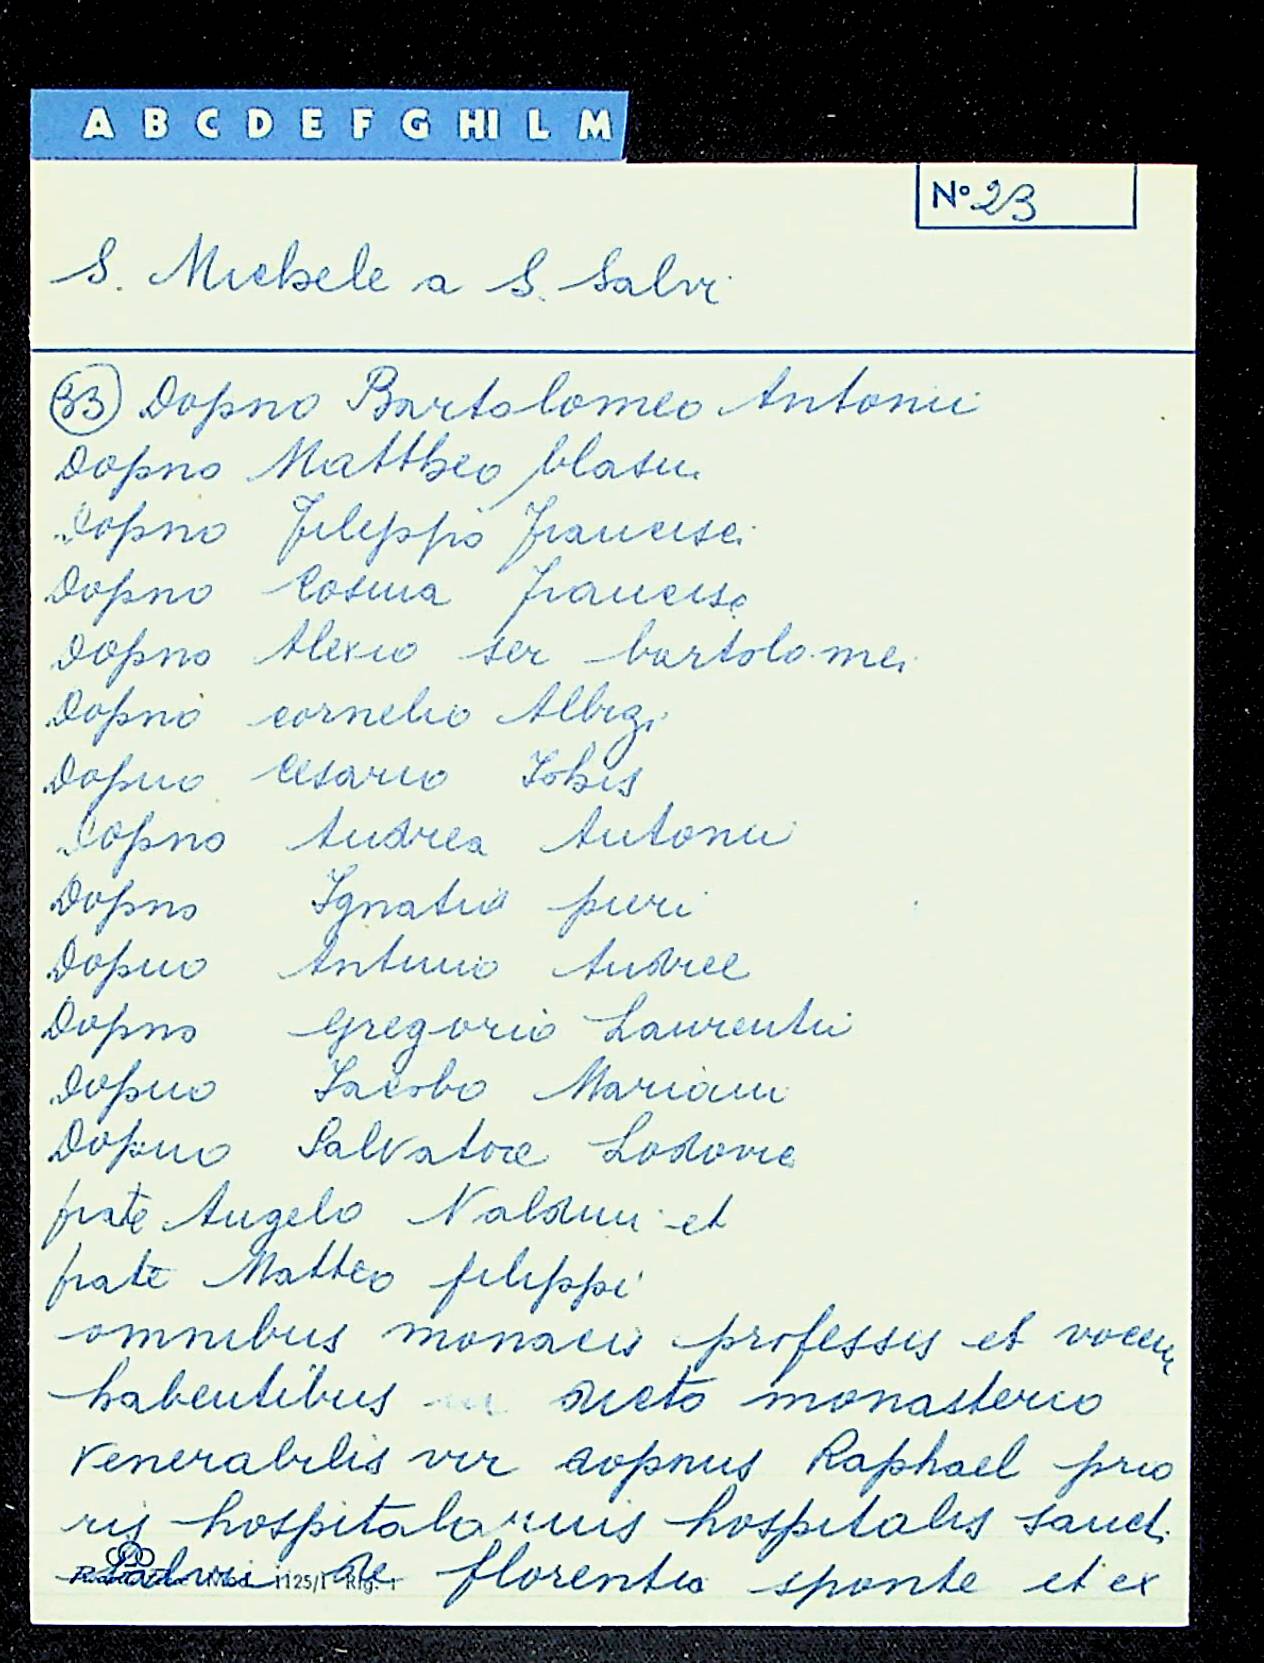 A B C D E F G HI L M
N° 23
S. Michele a S. Salvi
33 Dopno Bartolomeo Antonii
Dopno Mattheo blasii
Dopno Filippo Francisci
Dopno Cosma Francisci
Dopno Alexio ser bartolomei
Dopno cornelio Albizi
Dopno Cesario Johis
Dopno Andrea Antonii
Dopno Ignatio pieri
Dopno Antonio Andree
Dopno Gregorio Laurentii
Dopno Iacobo Mariani
Dopno Salvatore Lodovici
frate Angelo Naldini et
frate Matteo filippi
omnibus monacis professis et vocem
habentibus in dicto monasterio
Venerabilis vir dopnus Raphael prio
ris hospitalarius hospitalis sancti
Salvi de florentia sponte et ex
1125/1 Rig. 1